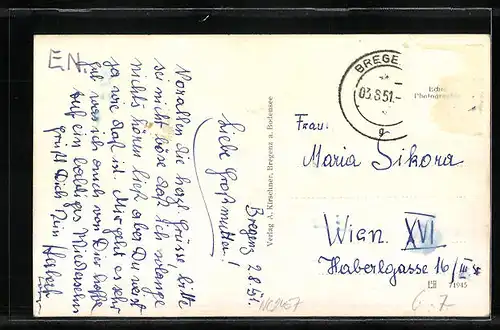 EN.
Bregenz 2.8.51.
Liebe Großmutter!
Vorallem die herzl. Grüsse, bitte
sei nicht böse daß ich solange
nichts hören ließ, aber Du weist
ja wie daß ist. Mir geht es sehr
gut was ich auch von Dir hoffe
Auf ein baldiges Wiedersehen
grüßt Dich Dein
Verlag A. Kirschner, Bregenz a. Bodensee
BREGE
03.8.51.-
g
Echte
Photographie
Frau
Maria Sikora
Wien XVI
Haberlgasse 16/III
71945
6.7